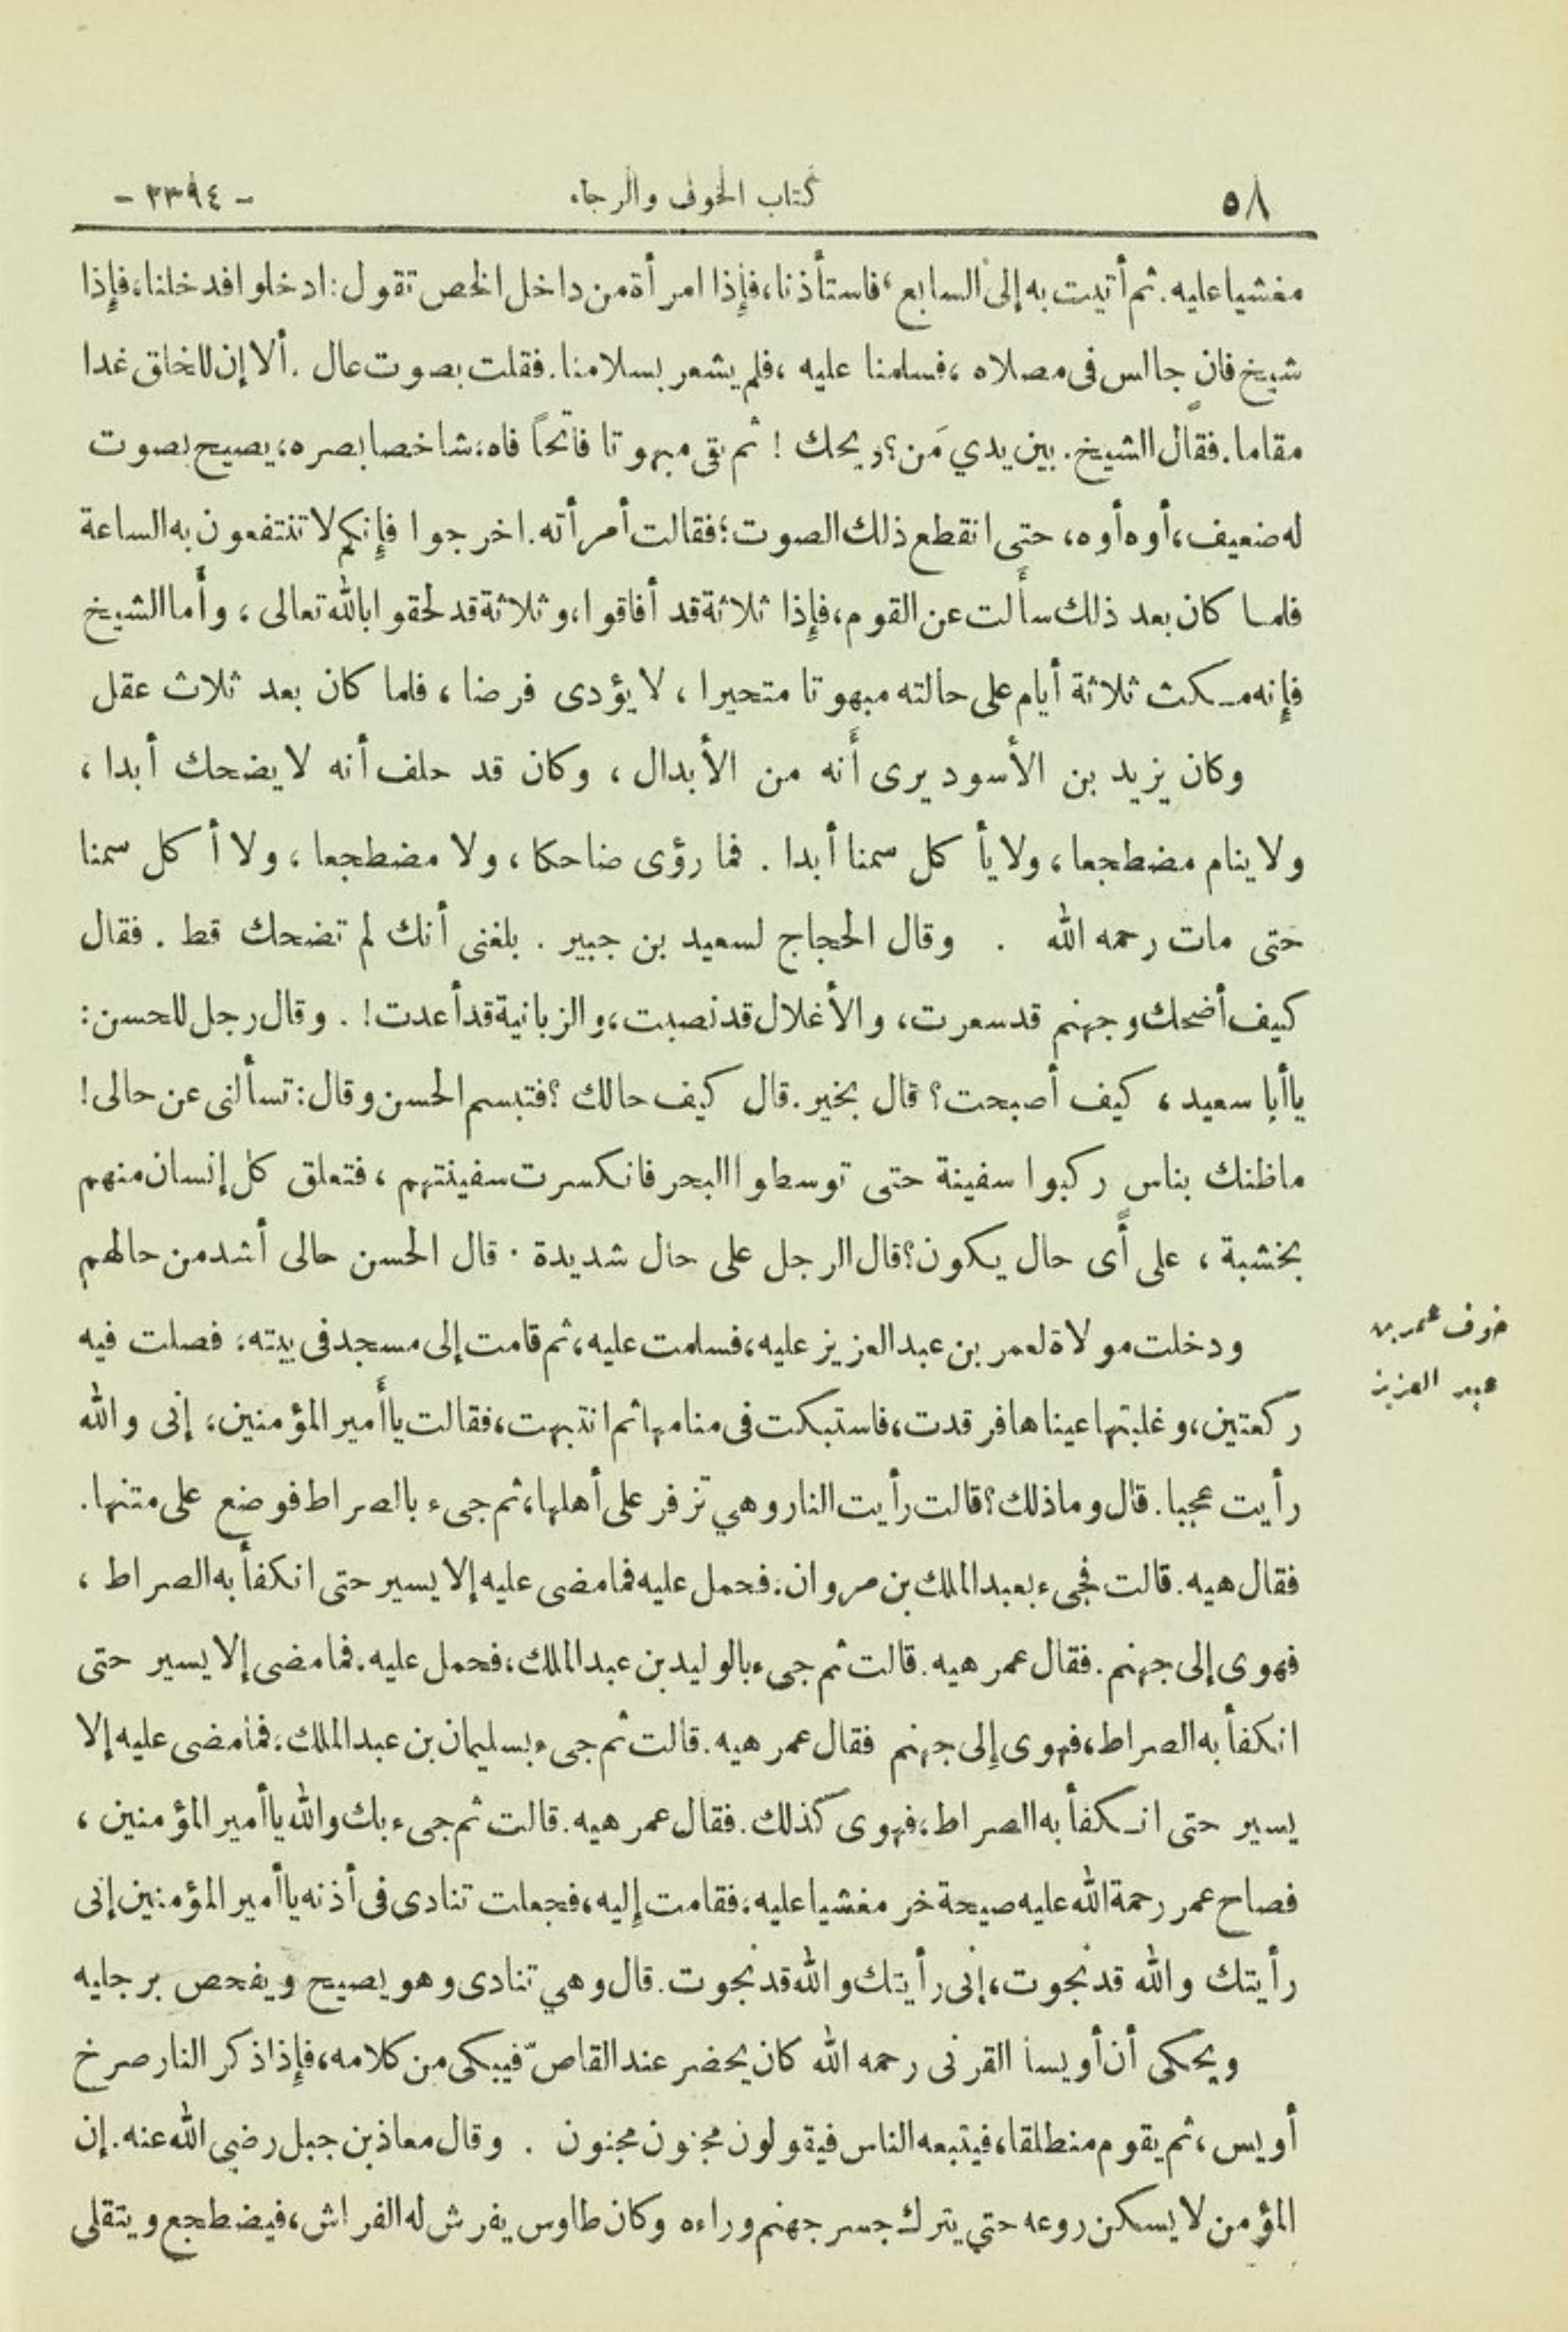 ٥٨ كتاب الخوف والرجاء - ٢٣٩٤ -
مغشيا عليه. ثم أتيت به إلى السابع، فاستأذنا، فإذا امرأة من داخل الخص تقول: ادخلوا فدخلنا، فإذا
شيخ فان جالس فى مصلاه، فسلمنا عليه، فلم يشعر بسلامنا. فقلت بصوت عال. ألا إن للخلق غدا
مقاما. فقال الشيخ. بين يدي مَن؟ ويحك! ثم بقى مبهوتا فاتحاً فاه، شاخصا بصره، يصيح بصوت
له ضعيف، أوه أوه، حتى انقطع ذلك الصوت؛ فقالت أمرأته. اخرجوا فإنكم لا تنتفعون به الساعة
فلما كان بعد ذلك سألت عن القوم، فإذا ثلاثة قد أفاقوا، وثلاثة قد لحقوا بالله تعالى، وأما الشيخ
فإنه مكث ثلاثة أيام على حالته مبهوتا متحيرا، لا يؤدى فرضا، فلما كان بعد ثلاث عقل
وكان يزيد بن الأسود يرى أنه من الأبدال، وكان قد حلف أنه لا يضحك أبدا،
ولا ينام مضطجعا، ولا يأكل سمنا أبدا. فما رؤى ضاحكا، ولا مضطجعا، ولا أكل سمنا
حتى مات رحمه الله . وقال الحجاج لسعيد بن جبير. بلغنى أنك لم تضحك قط. فقال
كيف أضحك وجهنم قد سعرت، والأغلال قد نصبت، والزبانية قد أعدت!. وقال رجل للحسن:
يا أبا سعيد، كيف أصبحت؟ قال بخير. قال كيف حالك؟ فتبسم الحسن وقال: تسألنى عن حالى!
ما ظنك بناس ركبوا سفينة حتى توسطوا البحر فانكسرت سفينتهم، فتعلق كل إنسان منهم
بخشبة، على أى حال يكون؟ قال الرجل على حال شديدة. قال الحسن حالى أشد من حالهم
خوف عمر بن
عبد العزيز
ودخلت مولاة لعمر بن عبد العزيز عليه، فسلمت عليه، ثم قامت إلى مسجد فى بيته، فصلت فيه
ركعتين، وغلبتها عيناها فرقدت، فاستبكت فى منامها ثم انتبهت، فقالت يا أمير المؤمنين، إنى والله
رأيت عجبا. قال وما ذلك؟ قالت رأيت النار وهي تزفر على أهلها، ثم جىء بالصراط فوضع على متنها.
فقال هيه. قالت فجىء بعبد الملك بن مروان، فحمل عليه فما مضى عليه إلا يسير حتى انكفأ به الصراط،
فهوى إلى جهنم. فقال عمر هيه. قالت ثم جىء بالوليد بن عبد الملك، فحمل عليه. فما مضى إلا يسير حتى
انكفأ به الصراط، فهوى إلى جهنم فقال عمر هيه. قالت ثم جىء بسليمان بن عبد الملك، فما مضى عليه إلا
يسير حتى انكفأ به الصراط، فهوى كذلك. فقال عمر هيه. قالت ثم جىء بك والله يا أمير المؤمنين،
فصاح عمر رحمة الله عليه صيحة خر مغشيا عليه، فقامت إليه، فجعلت تنادى فى أذنه يا أمير المؤمنين إنى
رأيتك والله قد نجوت، إنى رأيتك والله قد نجوت. قال وهي تنادى وهو يصيح ويفحص برجليه
ويحكى أن أويسا القرنى رحمه الله كان يحضر عند القاصّ فيبكى من كلامه، فإذا ذكر النار صرخ
أويس، ثم يقوم منطلقا، فيتبعه الناس فيقولون مجنون مجنون . وقال معاذ بن جبل رضي الله عنه. إن
المؤمن لا يسكن روعه حتي يترك جسر جهنم وراءه وكان طاوس يفرش له الفراش، فيضطجع ويتقلى